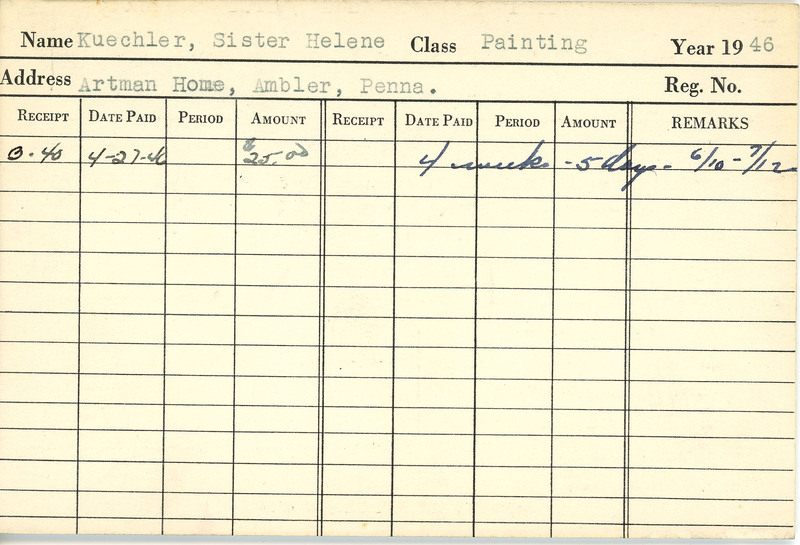 Name Kuechler, Sister Helene Class Painting Year 19 46
Address Artman Home, Ambler, Penna. Reg. No.
RECEIPT DATE PAID PERIOD AMOUNT RECEIPT DATE PAID PERIOD AMOUNT REMARKS
0-40 4-27-46 $25.00 4 weeks - 5 days - 6/10 - 7/12